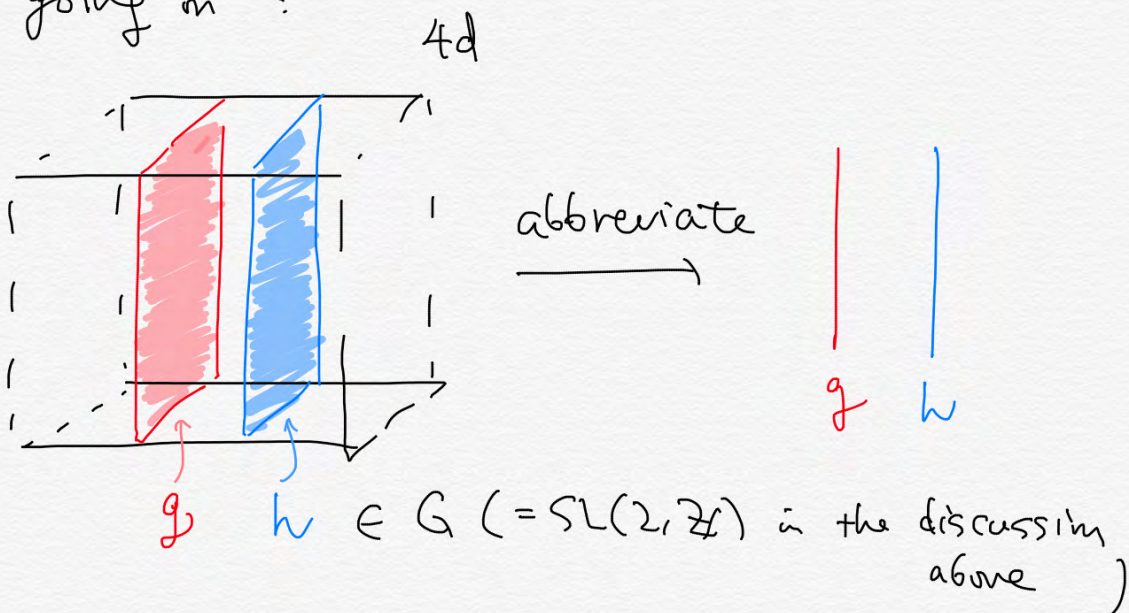 going in ?
4d
abbreviate
g h
g h ∈ G ( = SL(2, ℤ) in the discussion
above )